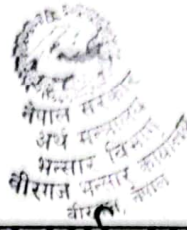 नेपाल सरकार
अर्थ मन्त्रालय
भन्सार विभाग
वीरगंज भन्सार कार्यालय
वीरगंज, नेपाल